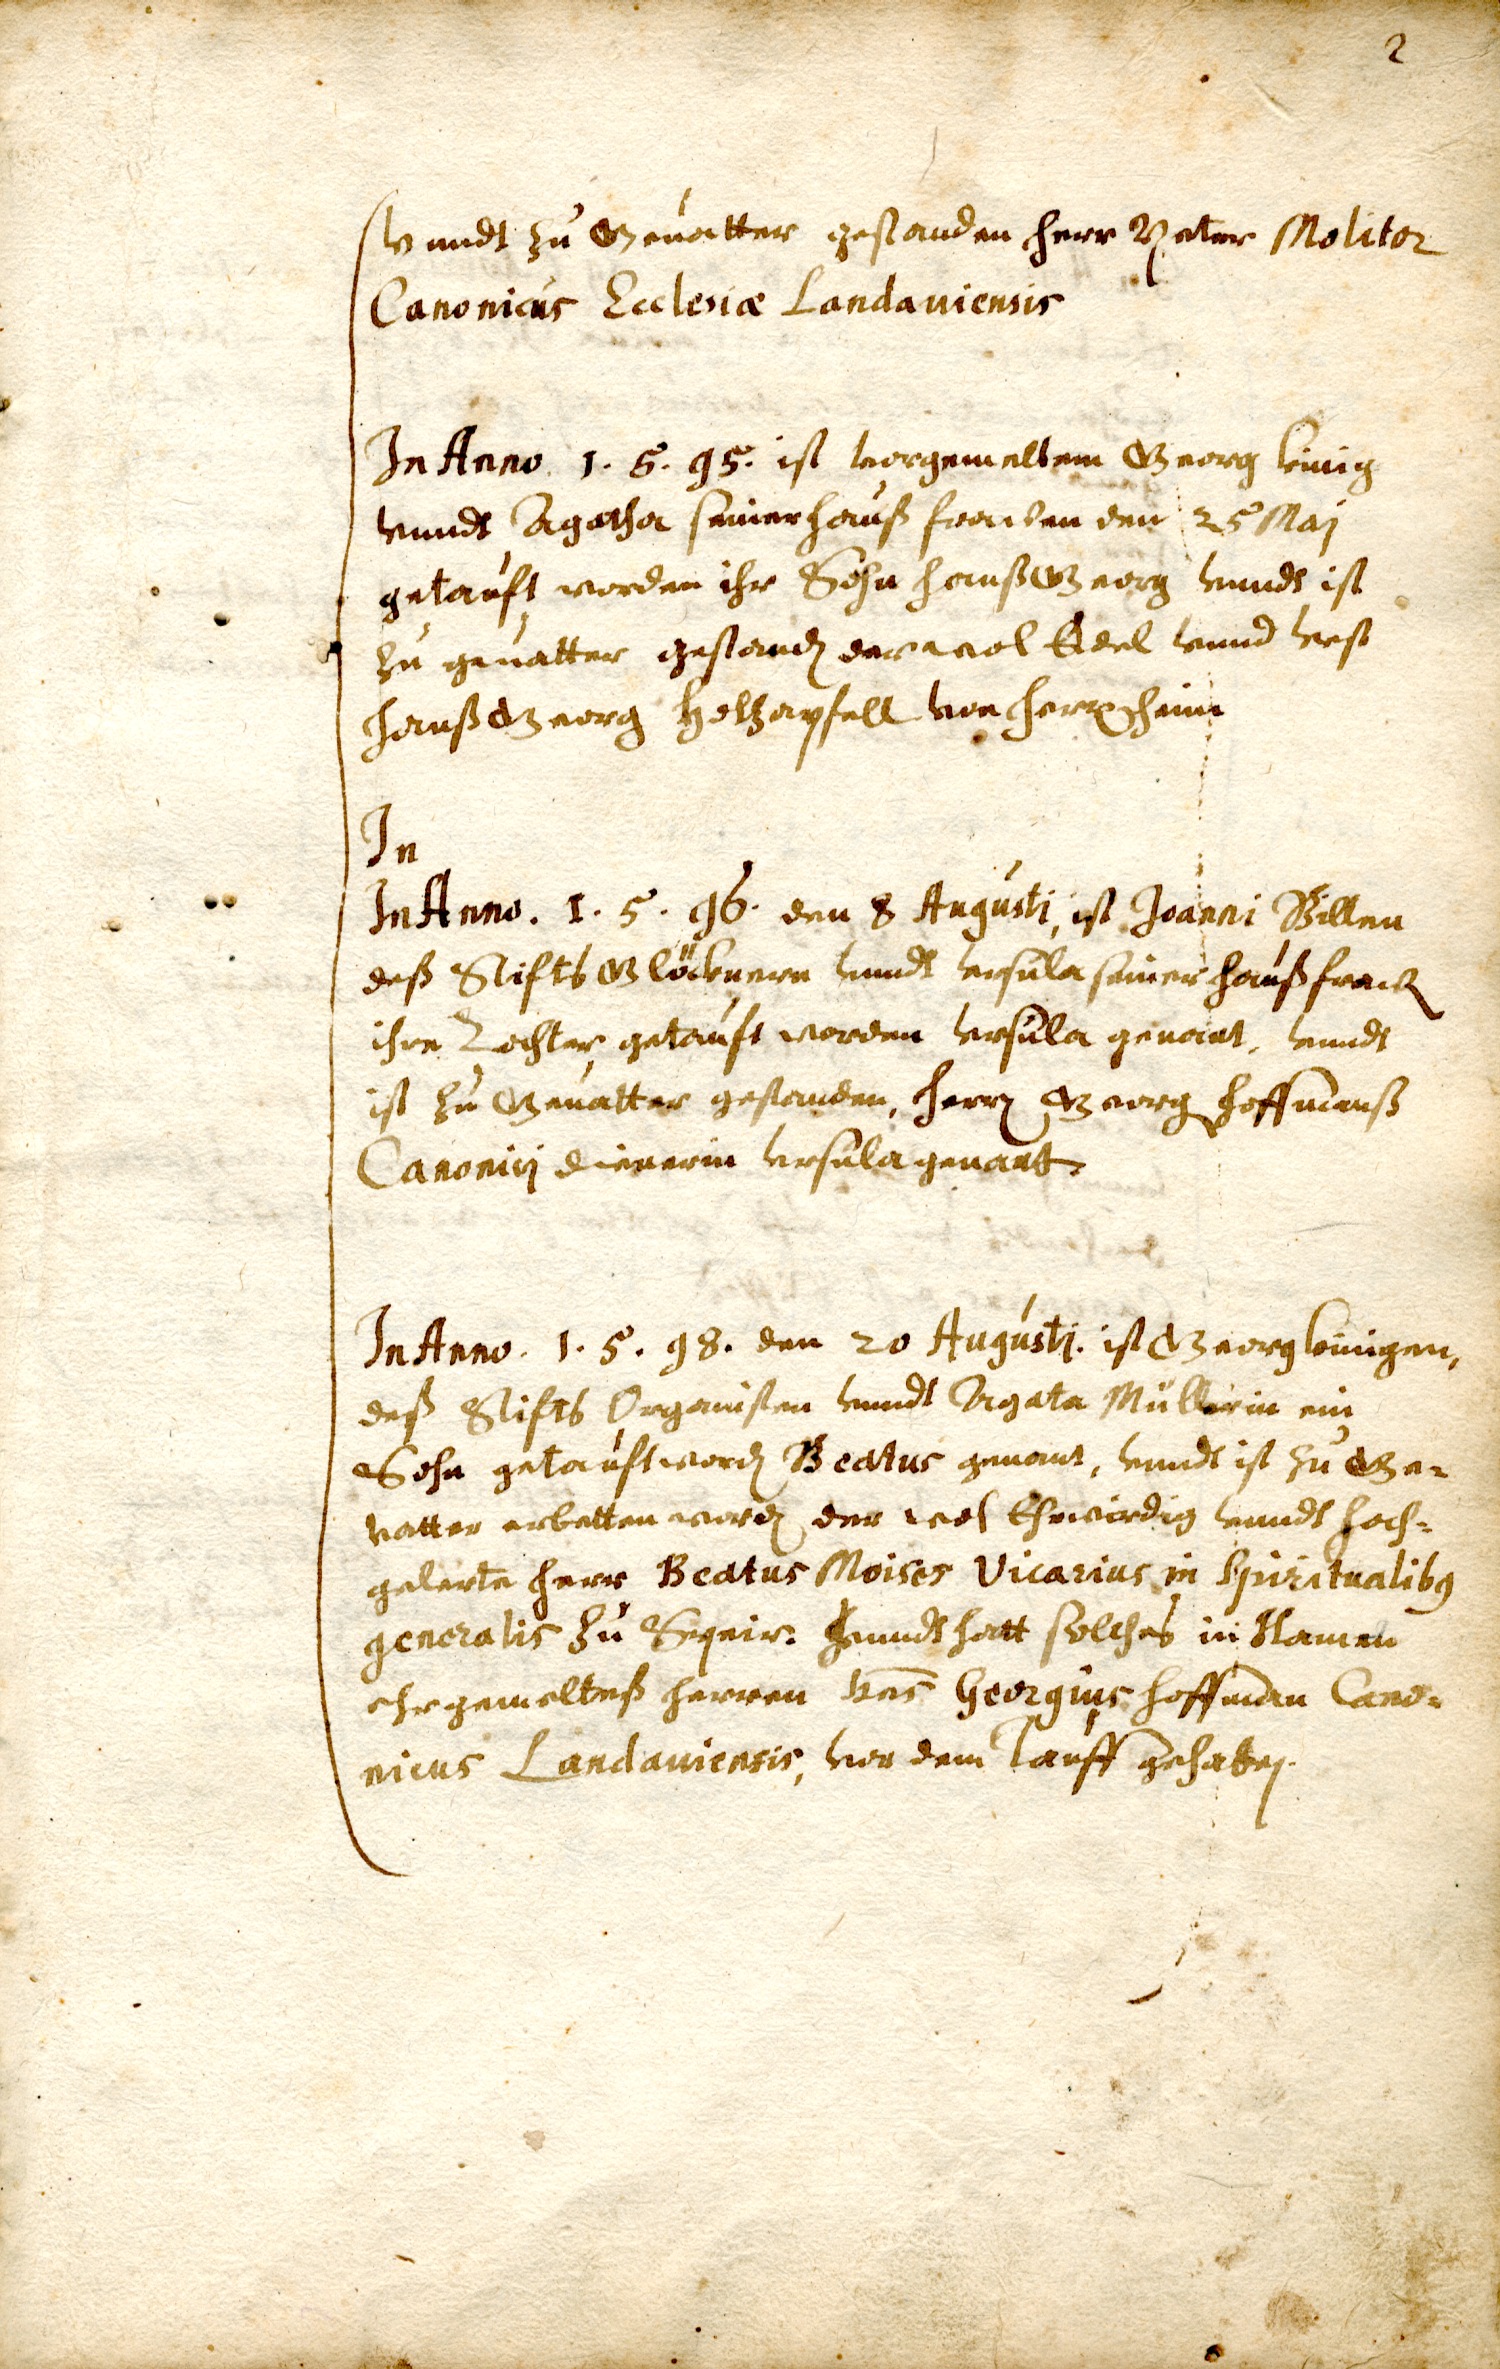 2
Vnndt zu Geuatter gestanden Herr Peter Molitor
Canonicus Ecclesiæ Landauiensis
In Anno 1. 5. 95. ist vorgemeltem Georg
vnndt Agatha seiner haußfrawen den 25 Maj
getaufft worden ihr Sohn Hanß Georg vnndt ist
zu geuatter gestandē der wol Edel vnnd vest
Hanß Georg Holtzapfell von Herxheim
In
In Anno. 1. 5. 96. den 8 Augusti, ist Joanni Billen
deß Stifts Glöcknern vnndt Vrsula seiner haußfrawē
ihre Tochter getauft worden Vrsula genant, vnndt
ist zu Geuatter gestanden, Herrē Georg Hoffmanß
Canonici dienerin Vrsula genant.
In Anno. 1. 5. 98. den 20 Augusti. ist Georg
deß Stifts Organisten vnndt Agata Müllerin ein
Sohn getauft wordē Beatus genant, vnndt ist zu Ge-
vatter erbetten wordē der wol Ehrwirdig vnndt hoch-
gelerte Herr Beatus Moises Vicarius in Spiritualibꝰ
generalis zu Speir. vnndt hatt solches in Namen
ehrgemeltes herren Georgius Hoffman Cano-
nicus Landauiensis, vor dem Tauff gehaltē.